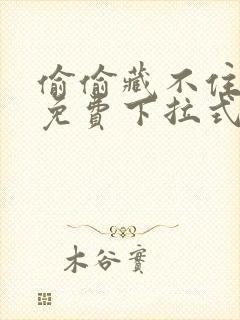 偷偷藏不住
免費下拉式
木谷實